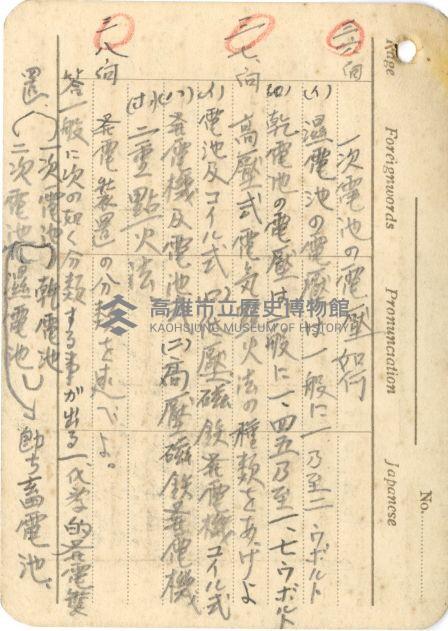 No.
Page Foreignwords Pronunciation Japanese
三六问 一次電池の電壓如何
(イ) 湿電池の電壓は一般に一乃至二ウボルト
(ロ) 乾電池の電壓は一般に一、四五乃至一、七ウボルト
三七问 高壓式電気火法の種類をあげよ
(イ) 電池及コイル式 (ロ) 壓磁鉄発電機コイル式
(ハ) 発電機及電池 (ニ) 高壓磁鉄発電機
(ホ) 二重點火法
三八问 発電装置の分類を述べよ。
答 一般に次の如く分類する事が出る 一化学的発電装
置 一次電池 乾電池
二次電池 湿電池 即ち畜電池、
高雄市立歷史博物館
KAOHSIUNG MUSEUM OF HISTORY